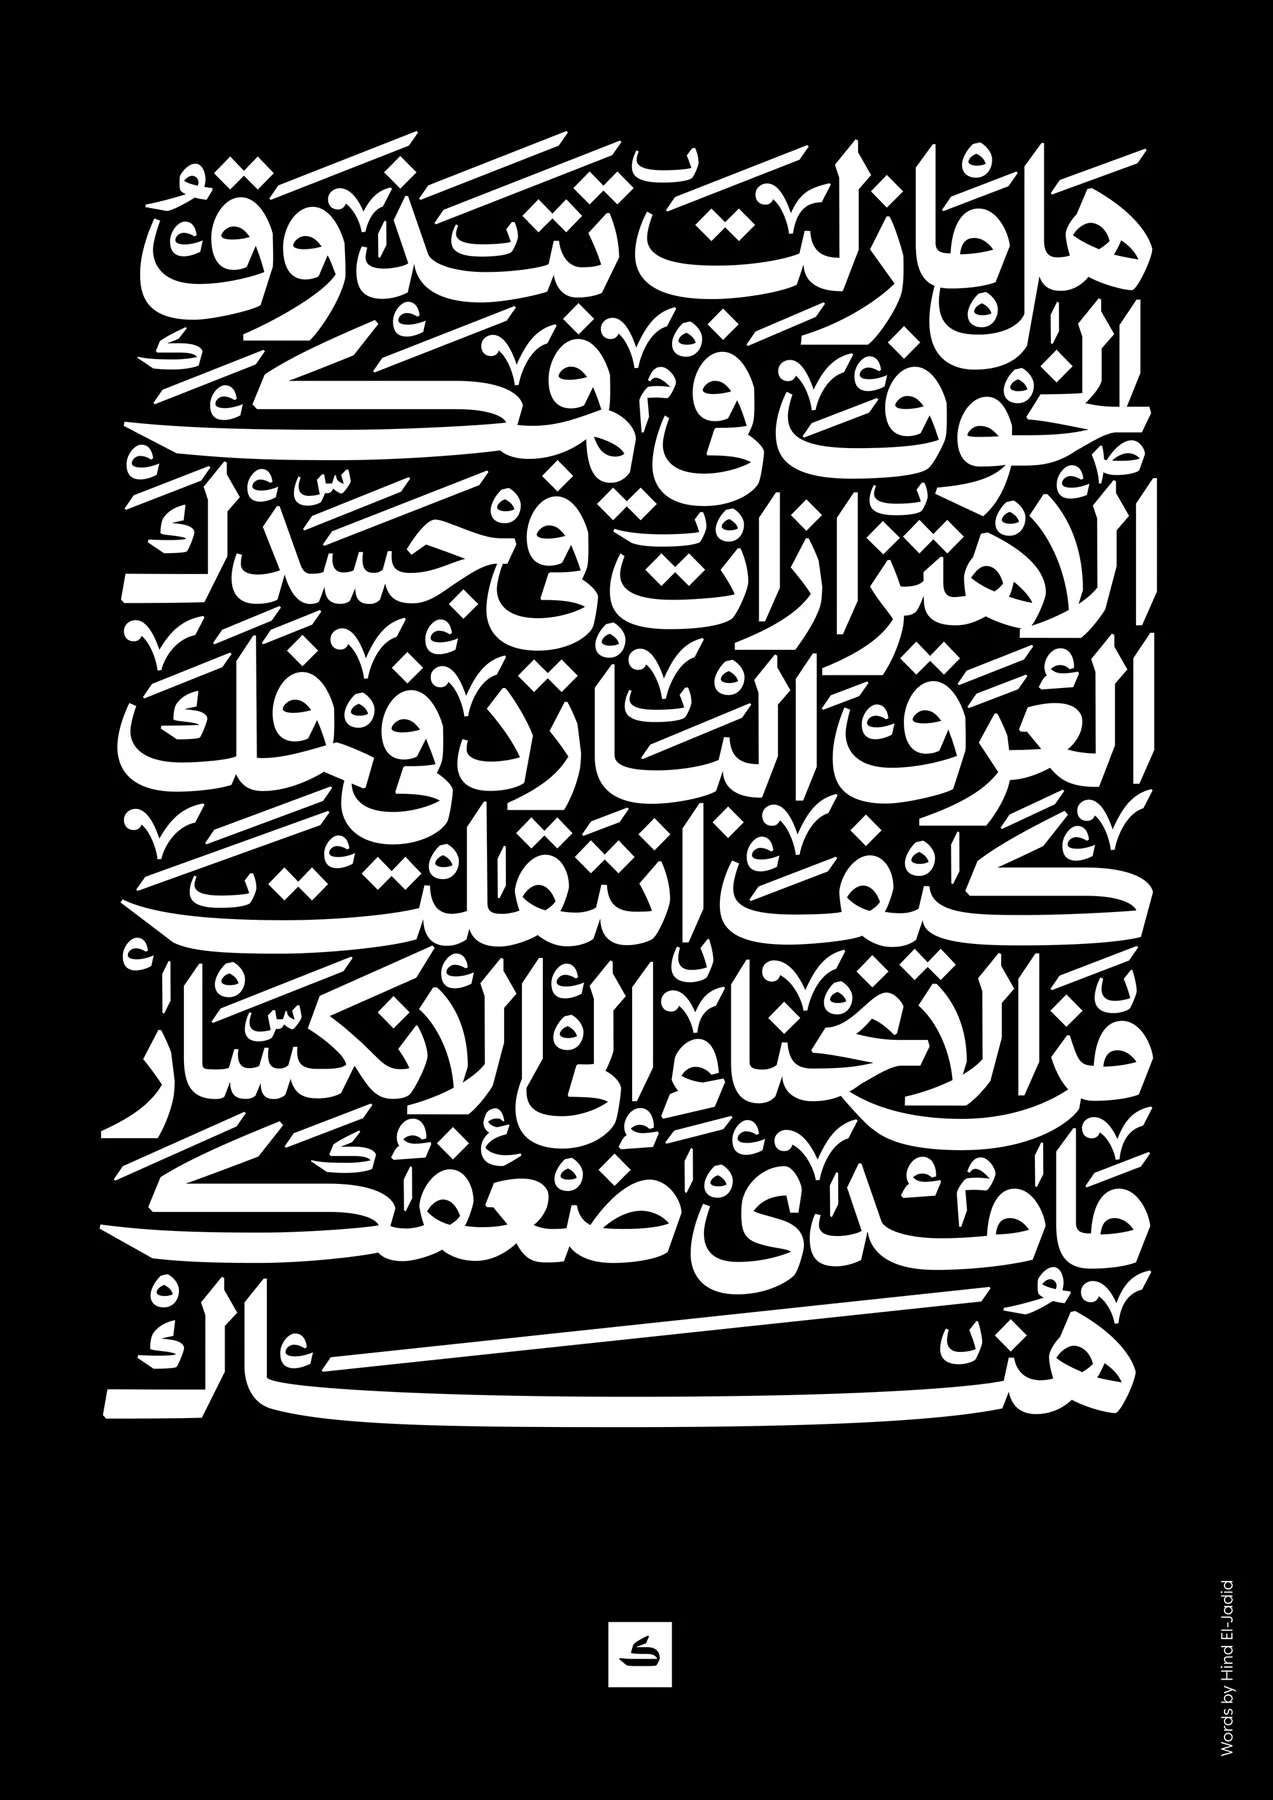 هَل مَاْ زلتَ تتَذَوَقُ
الخَوْفَ فيْ فمكَ
الأهْتزازاتْ فيْ جَسَدك
العَرَقَ البَاْرْد في فمكَ
كيْفَ انتَقلْتَ
مَن الانْحناءِ إلىْ الأنكسَاْر
مَا مدىْ ضعْفكَ
هُنَاكْ
ک
Words by Hind El-Jadid